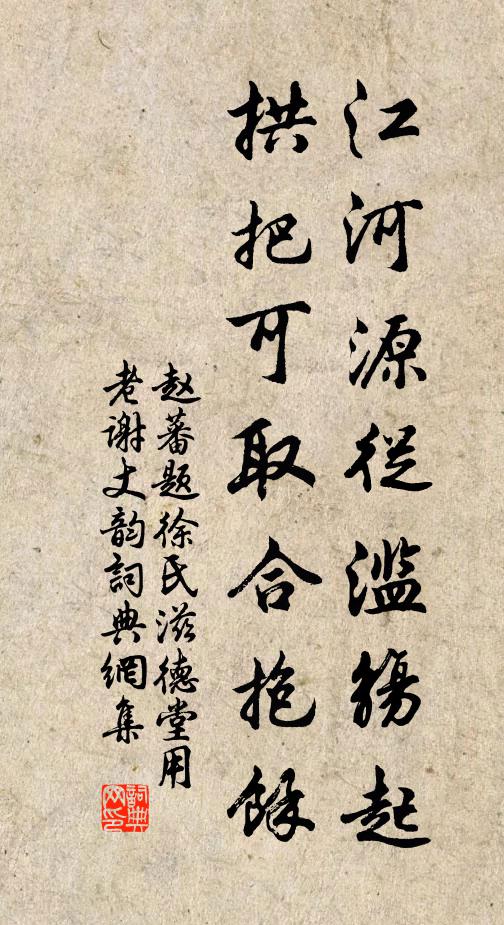 江河源從滥觴起
拱把可取合抱餘
赵蕃题徐氏滋德堂用
老谢丈韵詞典網集
詞典网印